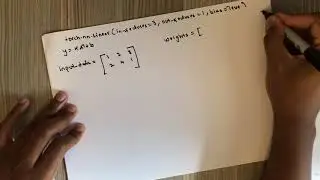 torch.nn.Linear (in_features=3, out_features=1, bias=True)
y = xAT+b
input_data = [ 1 2 3
2 4 1 ]
weights = [